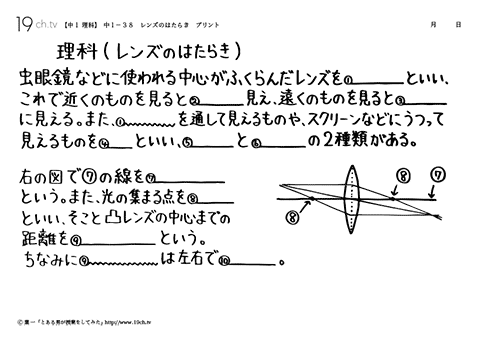 19ch.tv 【中1 理科】 中1-38 レンズのはたらき プリント 月 日
理科(レンズのはたらき)
虫眼鏡などに使われる中心がふくらんだレンズを①______といい、
これで近くのものを見ると②______見え、遠くのものを見ると③______
に見える。また、①______を通して見えるものや、スクリーンなどにうつって
見えるものを④______といい、⑤______と⑥______の2種類がある。
右の図で⑦の線を⑦______
という。また、光の集まる点を⑧______
といい、そこと凸レンズの中心までの
距離を⑨______という。
ちなみに⑨______は左右で⑩______。
⑧ ⑦
⑧
©葉一「とある男が授業をしてみた」http://www.19ch.tv